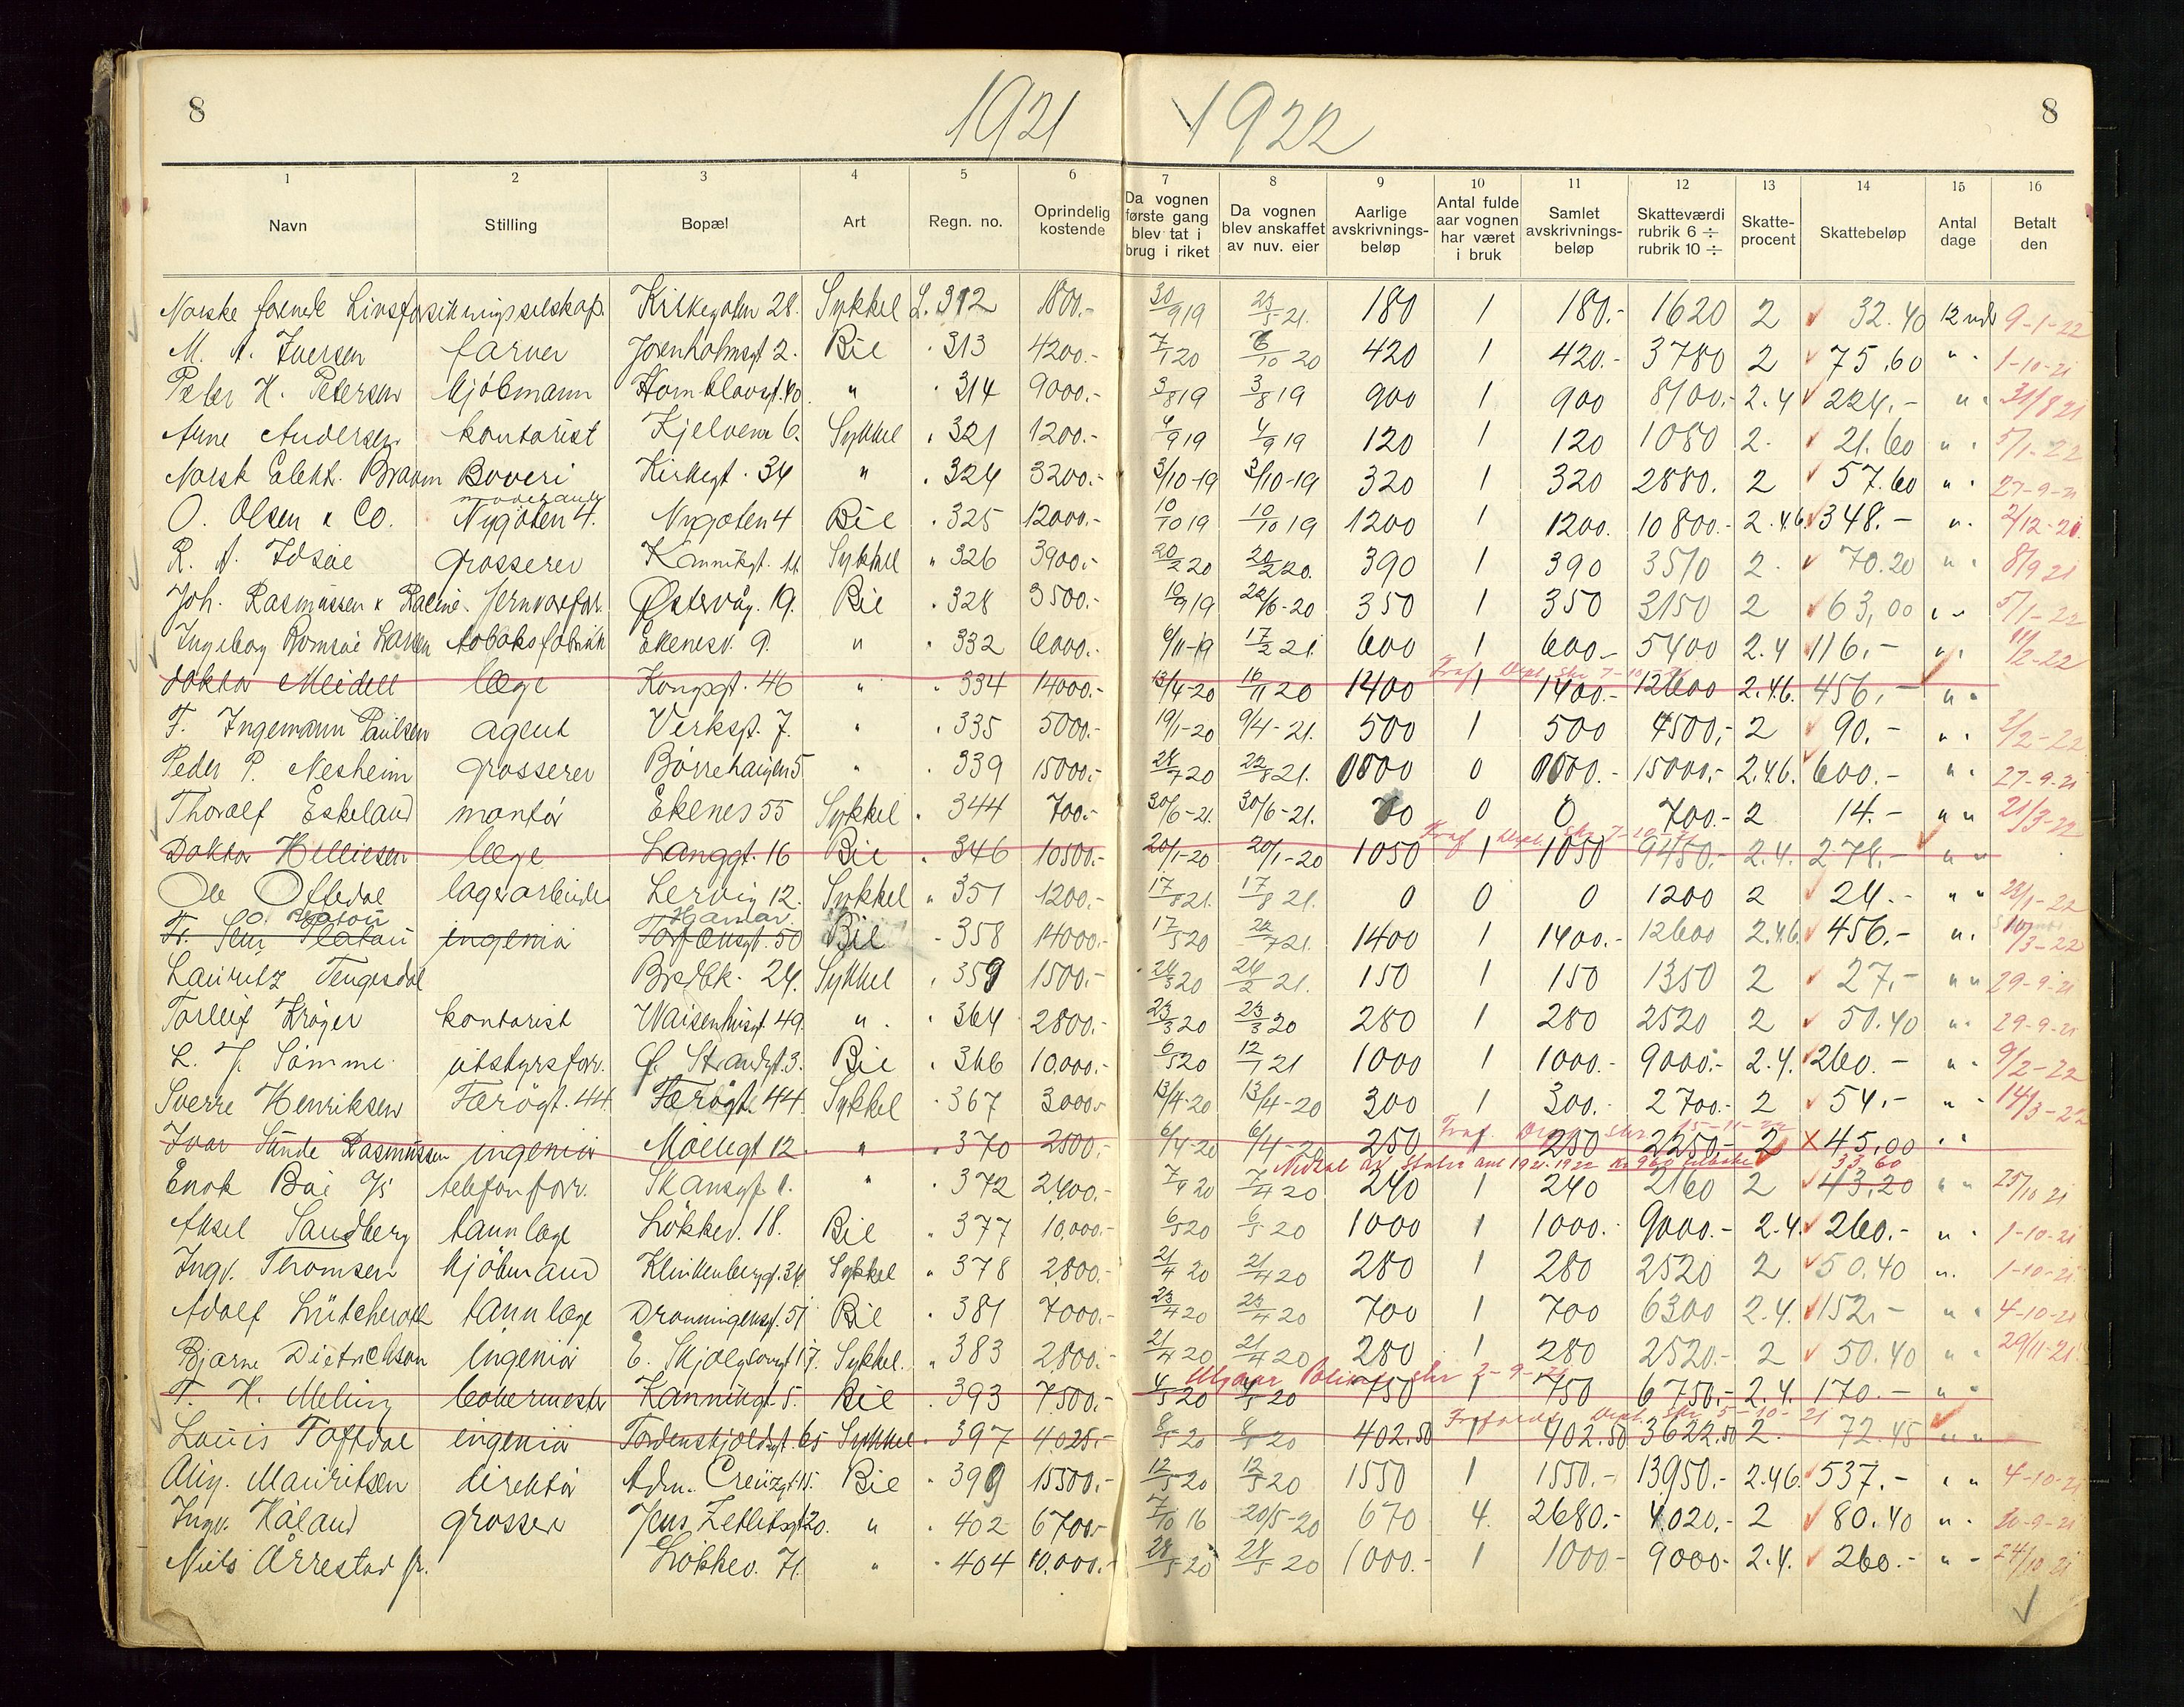 8 1921 1922 8
1 2 3 4 5 6 7 8 9 10 11 12 13 14 15 16
Navn Stilling Bopæl Art Regn. no. Oprindelig kostende Da vognen første gang blev tat i brug i riket Da vognen blev anskaffet av nuv. eier Aarlige avskrivnings-beløp Antal fulde aar vognen har været i bruk Samlet avskrivnings-beløp Skatteværdi rubrik 6 ÷ rubrik 10 ÷ Skatte-procent Skattebeløp Antal dage Betalt den
Norske forenede Livsforsikringsselskap. Kirkegaten 28. Sykkel L. 312 1800.- 30/9 19 23/5 21. 180 1 180.- 1620 2 32.40 12 mdr 9-1-22
M. A. Iversen farver Jorenholmsgt 2. Bil " 313 4200.- 7/1 20 6/10 20 420 1 420.- 3780 2 75.60 " " 1-10-21
Peder H. Petersen kjöbmann Hornklovsgt. 40. " " 314 9000.- 3/8 19 3/8 19 900 1 900 8100.- 2.4 224.- " " 31/8 21
Arne Andersen kontorist Kjelvene 6. Sykkel " 321 1200.- 4/9 19 4/9 19 120 1 120 1080 2. 21.60 " " 5/1-22
Norsk Elekt. Brown Boveri Kirkegt. 34 " " 324 3200.- 3/10-19 3/10-19 320 1 320 2880. 2 57.60 " " 27-9-21
O. Olsen & Co. Nygaten 4. Nygaten 4 Bil " 325 12000.- 10/10 19 10/10 19 1200 1 1200. 10800.- 2.4.6. 348.- " 2/12-21.
R. A. Idsöe grosserer Kannikgt. 11 Sykkel " 326 3900.- 20/2 20 20/2 20. 390 1 390 3510 2. 70.20 " " 8/9 21
Joh. Rasmussen & Racine. Jernvareforr. Østervåg. 19. Bil " 328 3500.- 10/9 19 22/6-20 350 1 350 3150 2 63,00 " " 5/1-22
Ingeborg Romsöe Larsen tobaksfabrik Ekenesv. 9. " " 332 6000.- 6/11-19 17/2 21. 600 1 600- 5400 2.4 116.- " " 11/2-22
Doktor Meidell læge Kongsgt. 46 " " 334 14000.- 13/4-20 16/11 20 1400 1 1400.- 12600 2.4.6. 456.- " "
F. Ingemann Paulsen agent Verksgt. 7. " " 335 5000.- 19/1-20 9/4-21. 500 1 500 4500,- 2 90.- " " 3/2-22
Peder P. Nesheim grosserer Börrehaugen 5 " " 339 15000.- 28/7 20 22/8 21. 0 15000,- 2.4.6. 600.- " " 27-9-21
Thoralf Eskeland montör Ekenes 55 Sykkel " 344 700.- 30/6-21. 30/6-21. 70 0 0 700.- 2 14.- " " 21/3-22
Doktor Helliesen læge Langgt. 16 Bil " 346 10500.- 20/1-20 20/1-20 1050 1 1050 9450.- 2.4. 278.- " "
Ole Oftedal lagerarbeider Lervig 12. Sykkel " 351 1200.- 17/8 21. 17/8 21. 0 0 0 1200 2 24.- " " 28/1-22
Fr. Platou ingeniör 50 Bil " 358 14000.- 17/5 20 22/7 21. 1400 1 1400.- 12600 2.4.6. 456.- " " 10/3-22
Lauritz Tengesdal Bredbk. 24. Sykkel " 359 1500.- 24/3 20 26/2 21. 150 1 150 1350 2 27.- " " 29-9-21
Torleif Kröger kontorist Waisenhusgt. 49. " " 364 2800.- 23/3 20 23/3 20 280 1 280 2520 2 50.40 " " 29-9-21
L. J. Sömme utstyrsforr. Ø. Strandgt. 3. Bil " 366 10.000.- 6/5 20 12/1 21 1000 1 1000.- 9000.- 2.4. 260.- " " 9/2-22
Sverre Henriksen Færögt. 44 Færögt. 44 Sykkel " 367 3000.- 13/4-20 13/4-20 300 1 300.- 2700.- 2 54.- " " 14/3-22
Ivar Sunde Rasmussen ingeniör Möllegt 12. " " 370 2500.- 6/4-20 6/4-20 250 1 250 2250.- 2 45,00 " "
33 60
Enok Bøe A/S telefonforr. Skansegt. 1. " " 372 2400.- 7/4 20 7/4 20 240 1 240 2160 2 43.20 " " 25/10 21
Aksel Sandberg tannlæge Lökkev. 18. Bil " 377 10,000.- 6/5 20 6/5 20 1000 1 1000.- 9000.- 2.4. 260.- " " 1-10-21
Ingv. Thomsen kjöbmand Klinkenberggt. 34 Sykkel " 378 2800.- 21/4 20 21/4 20 280 1 280 2520 2 50.40 " 1-10-21
Adolf Lütcherath tannlæge Dronningensgt. 51 Bil " 381 7000.- 23/4 20 23/4 20 700 1 700 6300 2.4. 152.- " " 4-10-21
Bjarne Dietrichson ingeniör E. Skjalgsonsgt 17. Sykkel. " 383 2800.- 21/4 20 21/4 20 280 1 280 2520.- 2 50.40 " " 29/11-21.
T. H. Meling bokermester Kannikgt 5. Bil " 393 7500.- 4/5 20 4/5 20 750 1 750 6750.- 2.4. 170.- " "
Louis Toftdal ingeniör Tordenskjoldsgt. 65 Sykkel " 397 4025.- 8/5 20 8/5 20 402.50 1 402.50 3622.50 2. 72.45 " "
Alig. Mauritsen direktör Adm. Creuzgt. 15. Bil " 399 15500.- 12/5 20 12/5 20 1550 1 1550.- 13950.- 2.4.6. 537.- " " 4-10-21
Ingv. Håland grosser Jens Zetlitsgt 20. " " 402 6700.- 7/10 16 20/5-20 670 4. 2680.- 4020.- 2 80.40 " " 20-9-21
Niels Årrestad jr. Lökkev. 71. " " 404 10.000.- 28/5 20 28/5 20 1000.- 1 1000- 9000- 2.4. 260.- " - 24/10 21